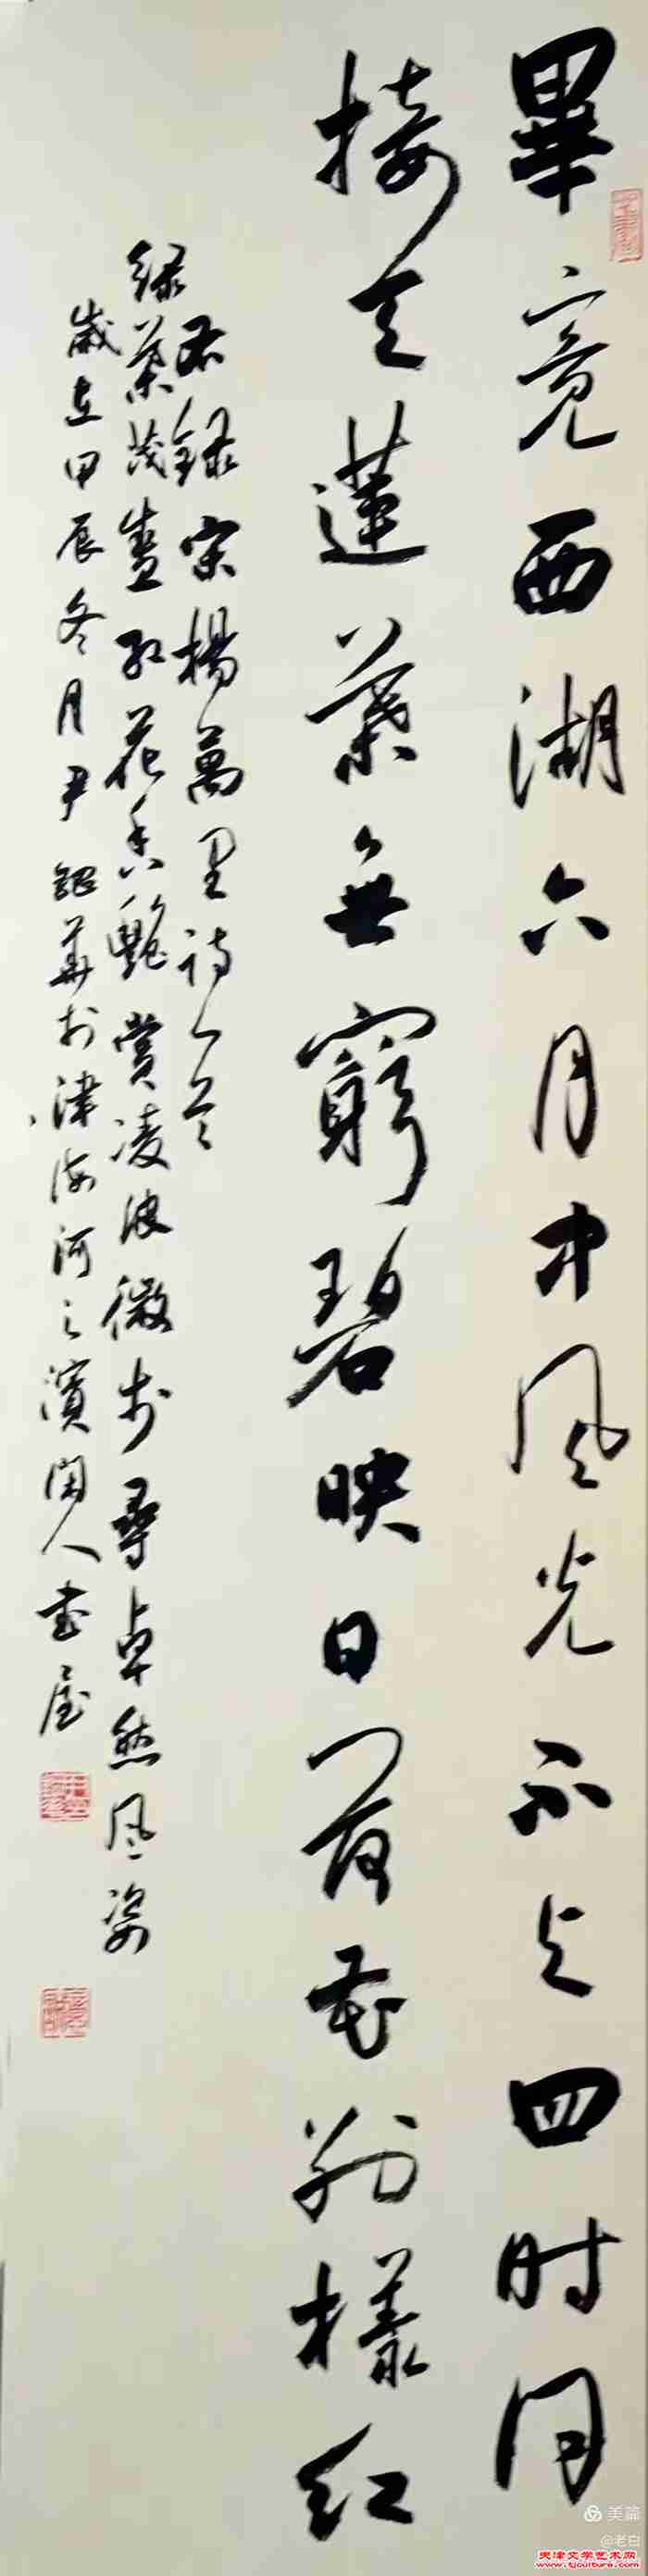 畢竟西湖六月中风光不与四时同
接天蓮葉無窮碧映日荷花别樣红
右録宋楊萬里詩一首
緑葉茂盛红花香艷賞凌波微步尋卓然风姿
歲在甲辰冬月尹 華於津海河之濱闲人书屋
美篇
@老白
天津文学艺术网
www.tjculture.com